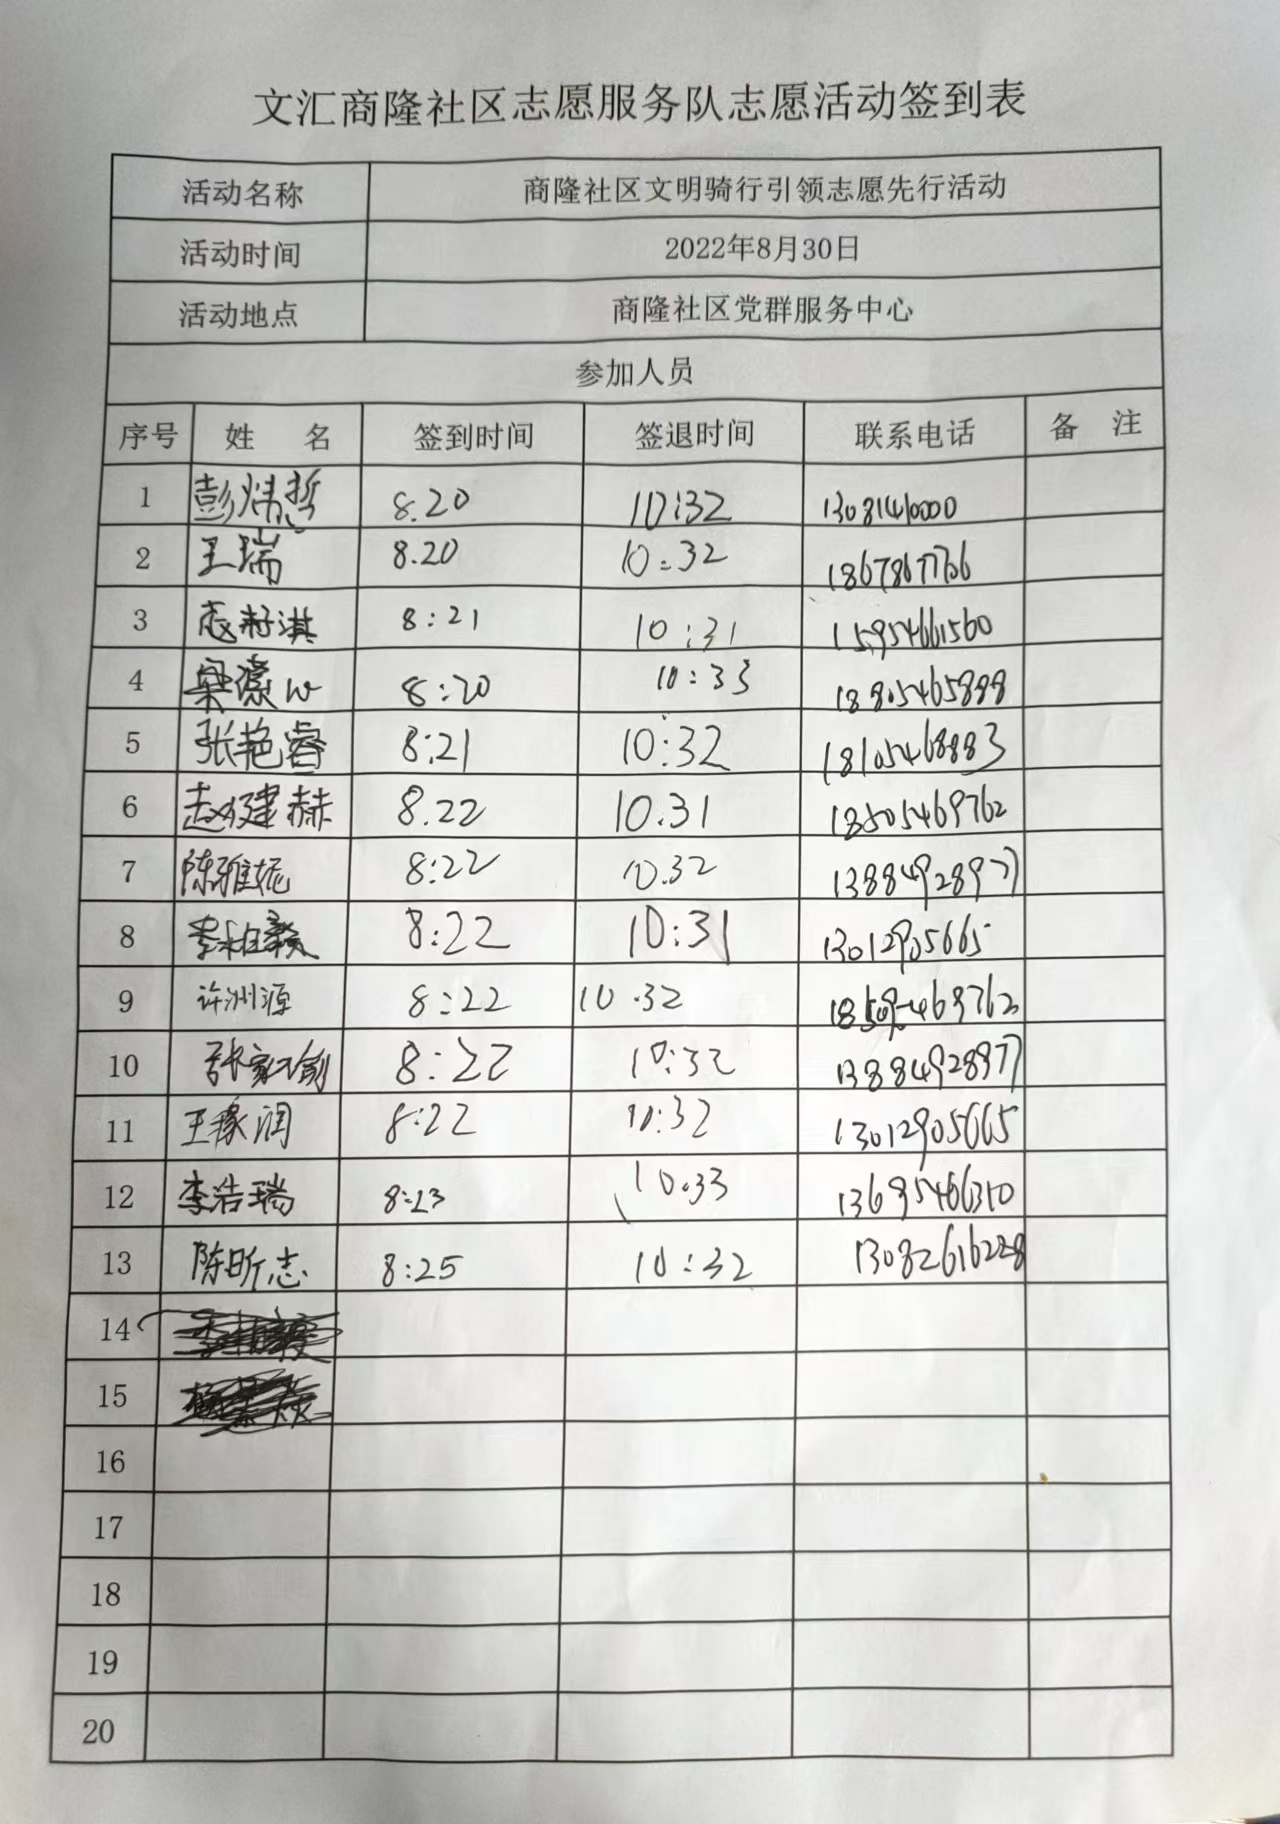 文汇商隆社区志愿服务队志愿活动签到表
活动名称 商隆社区文明骑行引领志愿先行活动
活动时间 2022年8月30日
活动地点 商隆社区党群服务中心
参加人员
序号 姓 名 签到时间 签退时间 联系电话 备 注
1 彭炜哲 8.20 10:32 13081410000
2 王瑞 8.20 10:32 18678677736
3 8:21 10:31 15954661560
4 梁 8:20 10:33 18805465888
5 张艳睿 8:21 10:32 18105468883
6 赵健赫 8.22 10.31 18505469762
7 陈雅妮 8:22 10.32 13884928977
8 李柏毅 8:22 10:31 13012905665
9 许洲源 8:22 10.32
10 张家瑜 8:22 10:32 13884928977
11 王稼润 8:22 10:32 13012905665
12 李浩瑞 8:23 10:33 13695466310
13 陈昕志 8:25 10:32 13082616228
14
15
16
17
18
19
20